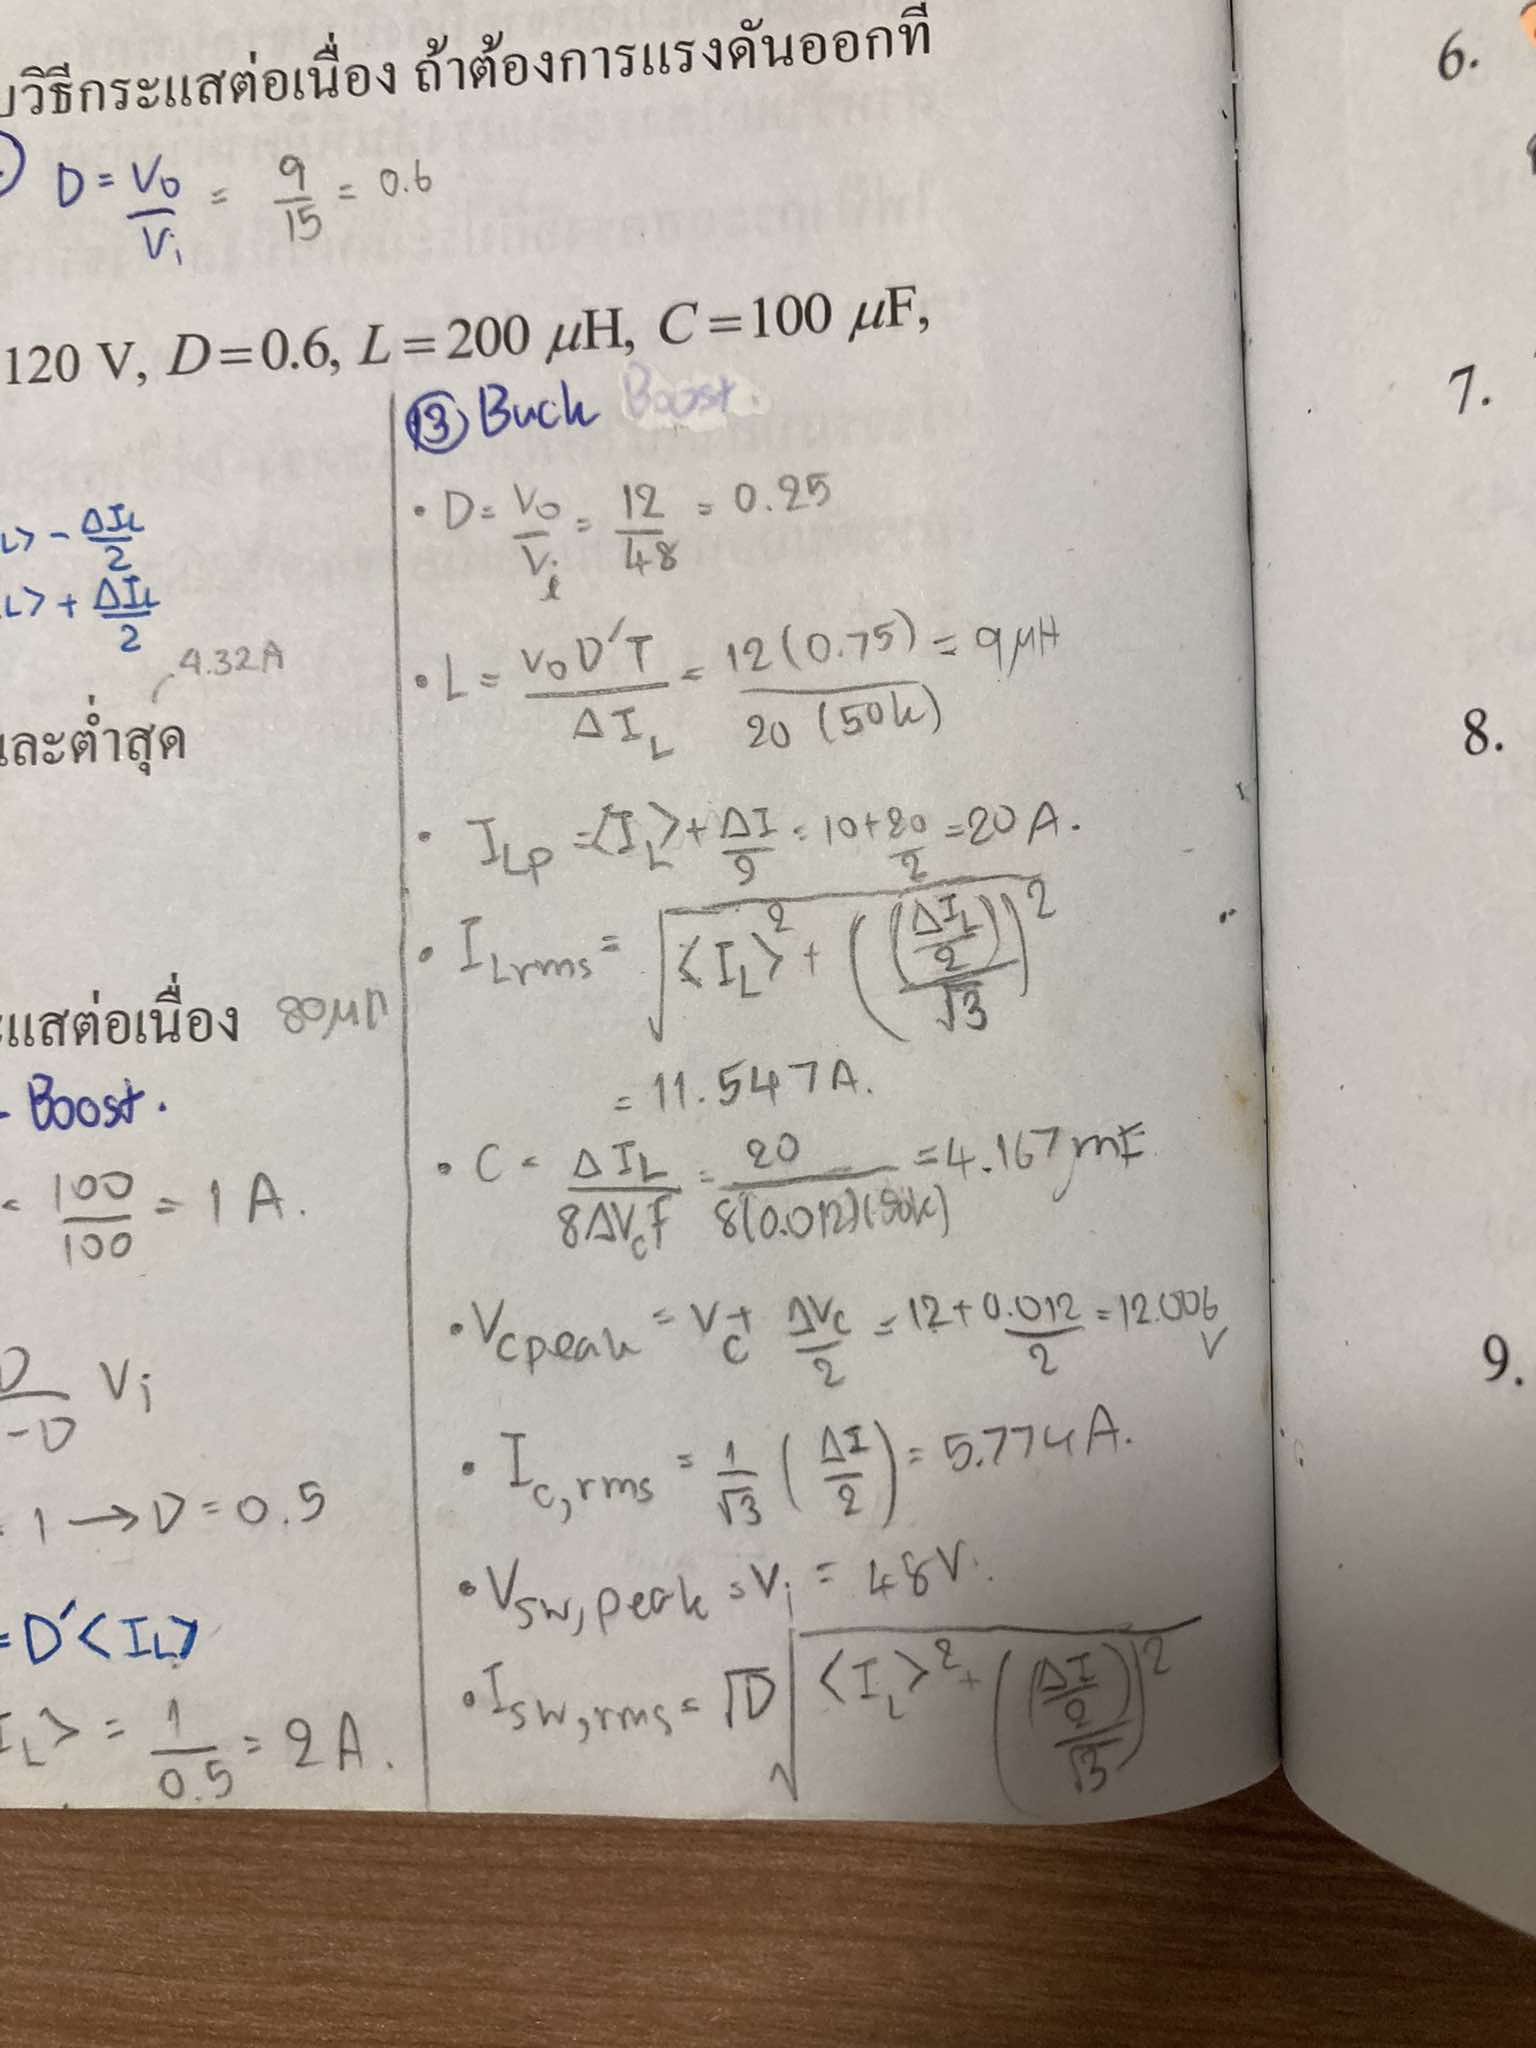 วิธีกระแสต่อเนื่อง ถ้าต้องการแรงดันออกที่
D = Vo/Vi = 9/15 = 0.6
120 V, D=0.6, L=200 μH, C=100 μF,
L> - ΔIL/2
L> + ΔIL/2
4.32A
และต่ำสุด
แสต่อเนื่อง 80μH
- Boost.
= 100/100 = 1 A.
D/-D Vi
= 1 → D = 0.5
= D'<IL>
IL> = 1/0.5 = 2 A.
13 Buck Boost.
• D = Vo/Vi = 12/48 = 0.25
• L = VoD'T/ΔIL = 12(0.75)/20(50k) = 9μH
• ILp = <IL> + ΔI/2 = 10+20/2 = 20 A.
• ILrms = √(<IL>² + ((ΔIL/2)/√3)²)
= 11.547A.
• C = ΔIL/8ΔVcF = 20/8(0.012)(50k) = 4.167mF
• Vcpeak = Vc + ΔVc/2 = 12 + 0.012/2 = 12.006 V
• Ic,rms = 1/√3 (ΔI/2) = 5.774A.
• Vsw,peak = Vi = 48V.
• Isw,rms = √D √(<IL>² + ((ΔI/2)/√3)²)
6.
7.
8.
9.